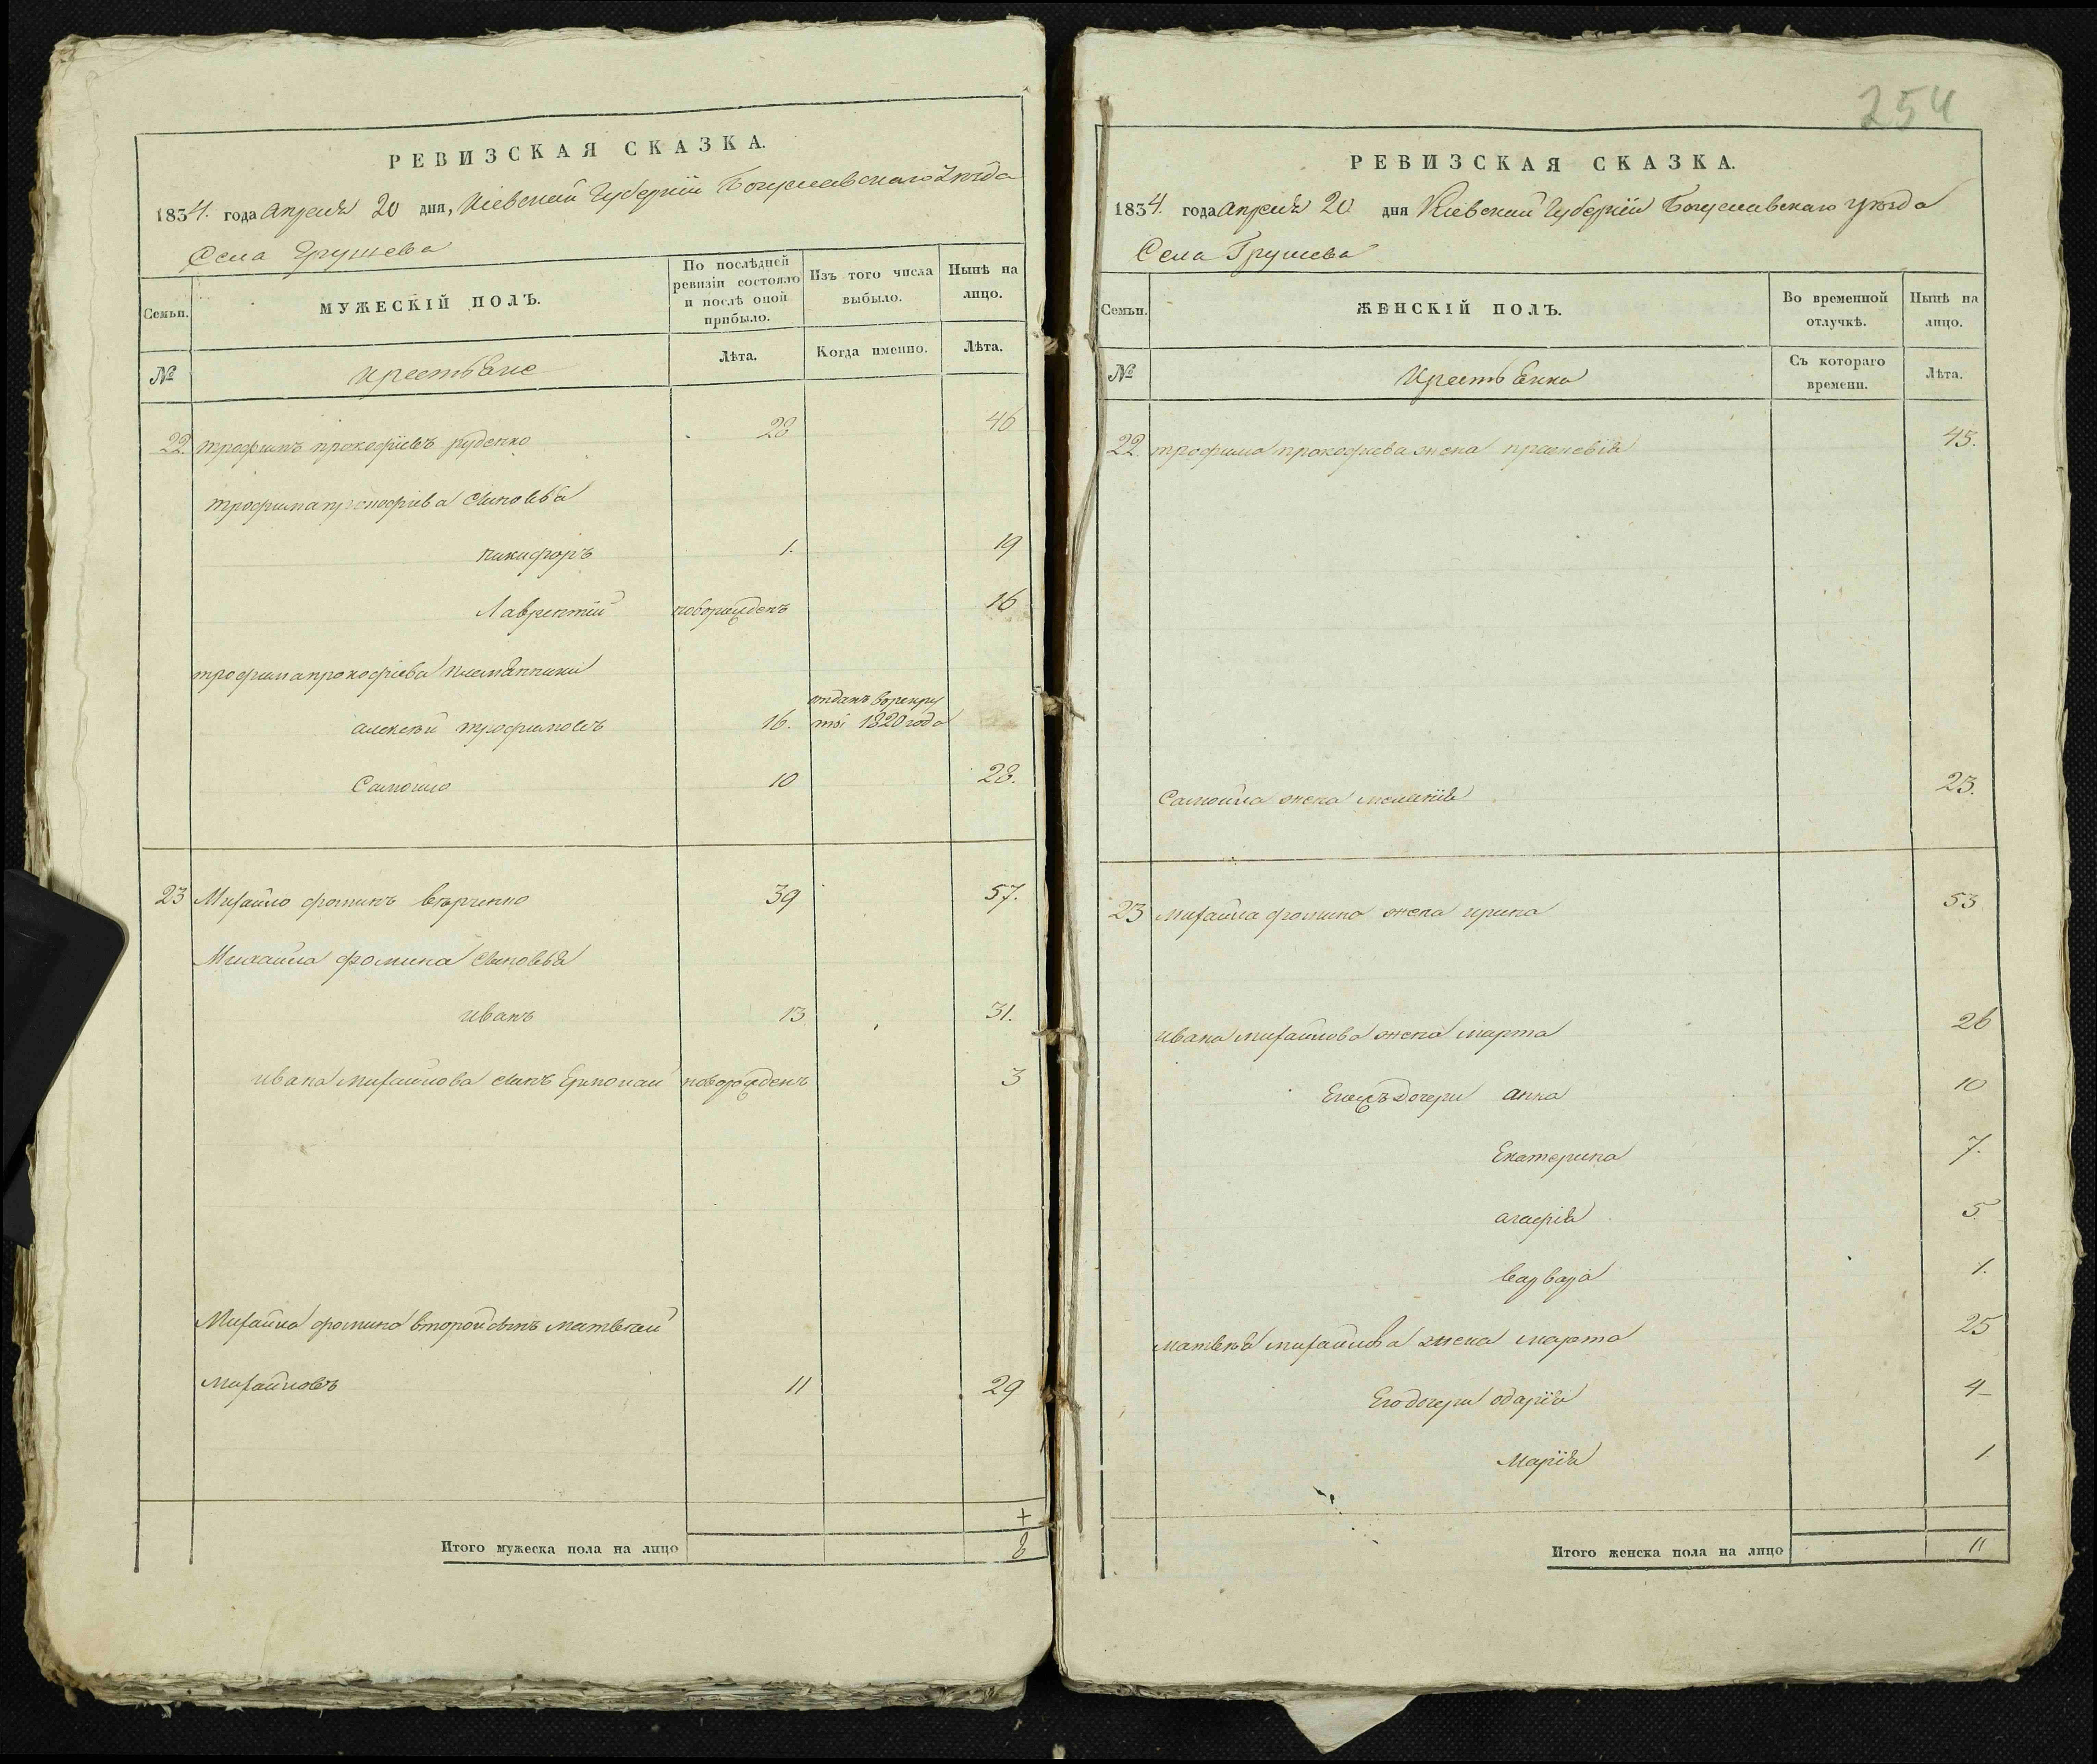 254
РЕВИЗСКАЯ СКАЗКА.
1834. года апреля 20 дня, Кіевской Губерніи Богуславскаго Уѣзда
Села Грушева
Семьи.
МУЖЕСКІЙ ПОЛЪ.
По послѣдней ревизіи состояло и послѣ оной прибыло.
Изъ того числа выбыло.
Нынѣ на лицо.
№
Крестьяне
Лѣта.
Когда именно.
Лѣта.
22. трофимъ прокофіевъ руденко 28 46
трофима прокофиева сыновья
никифоръ 1. 19
Лаврентій новорожденъ 16
трофима прокофіева племянники
отданъ врекру
алексѣй трофимовъ 16. ты 1820 года
Самойло 10 28.
23 Михайло фоминъ 39 57.
Михайла фомина сыновья
иванъ 13 31.
ивана михайлова сынъ Ермолай новорожденъ 3
Михайла фомина второй сынъ матвѣй
михайловъ 11 29
+
Итого мужеска пола на лицо 8
РЕВИЗСКАЯ СКАЗКА.
1834. года апреля 20. дня Кіевской Губерніи Богуславскаго уѣзда
Села Грушева
Семьи.
ЖЕНСКІЙ ПОЛЪ.
Во временной отлучкѣ.
Нынѣ на лицо.
№
Крестьянка
Съ котораго времени.
Лѣта.
22. трофима прокофиева жена прасковія 45.
Самойла жена меланія 23.
23 михайла фомина жена ирина 53
ивана михайлова жена марта 26
Егожъ дочери анна 10
Екатерина 7.
агафія 5
варвара 1.
матвѣя михайлова жена марта 25
Его дочери одарія 4
Марія 1
Итого женска пола на лицо 11